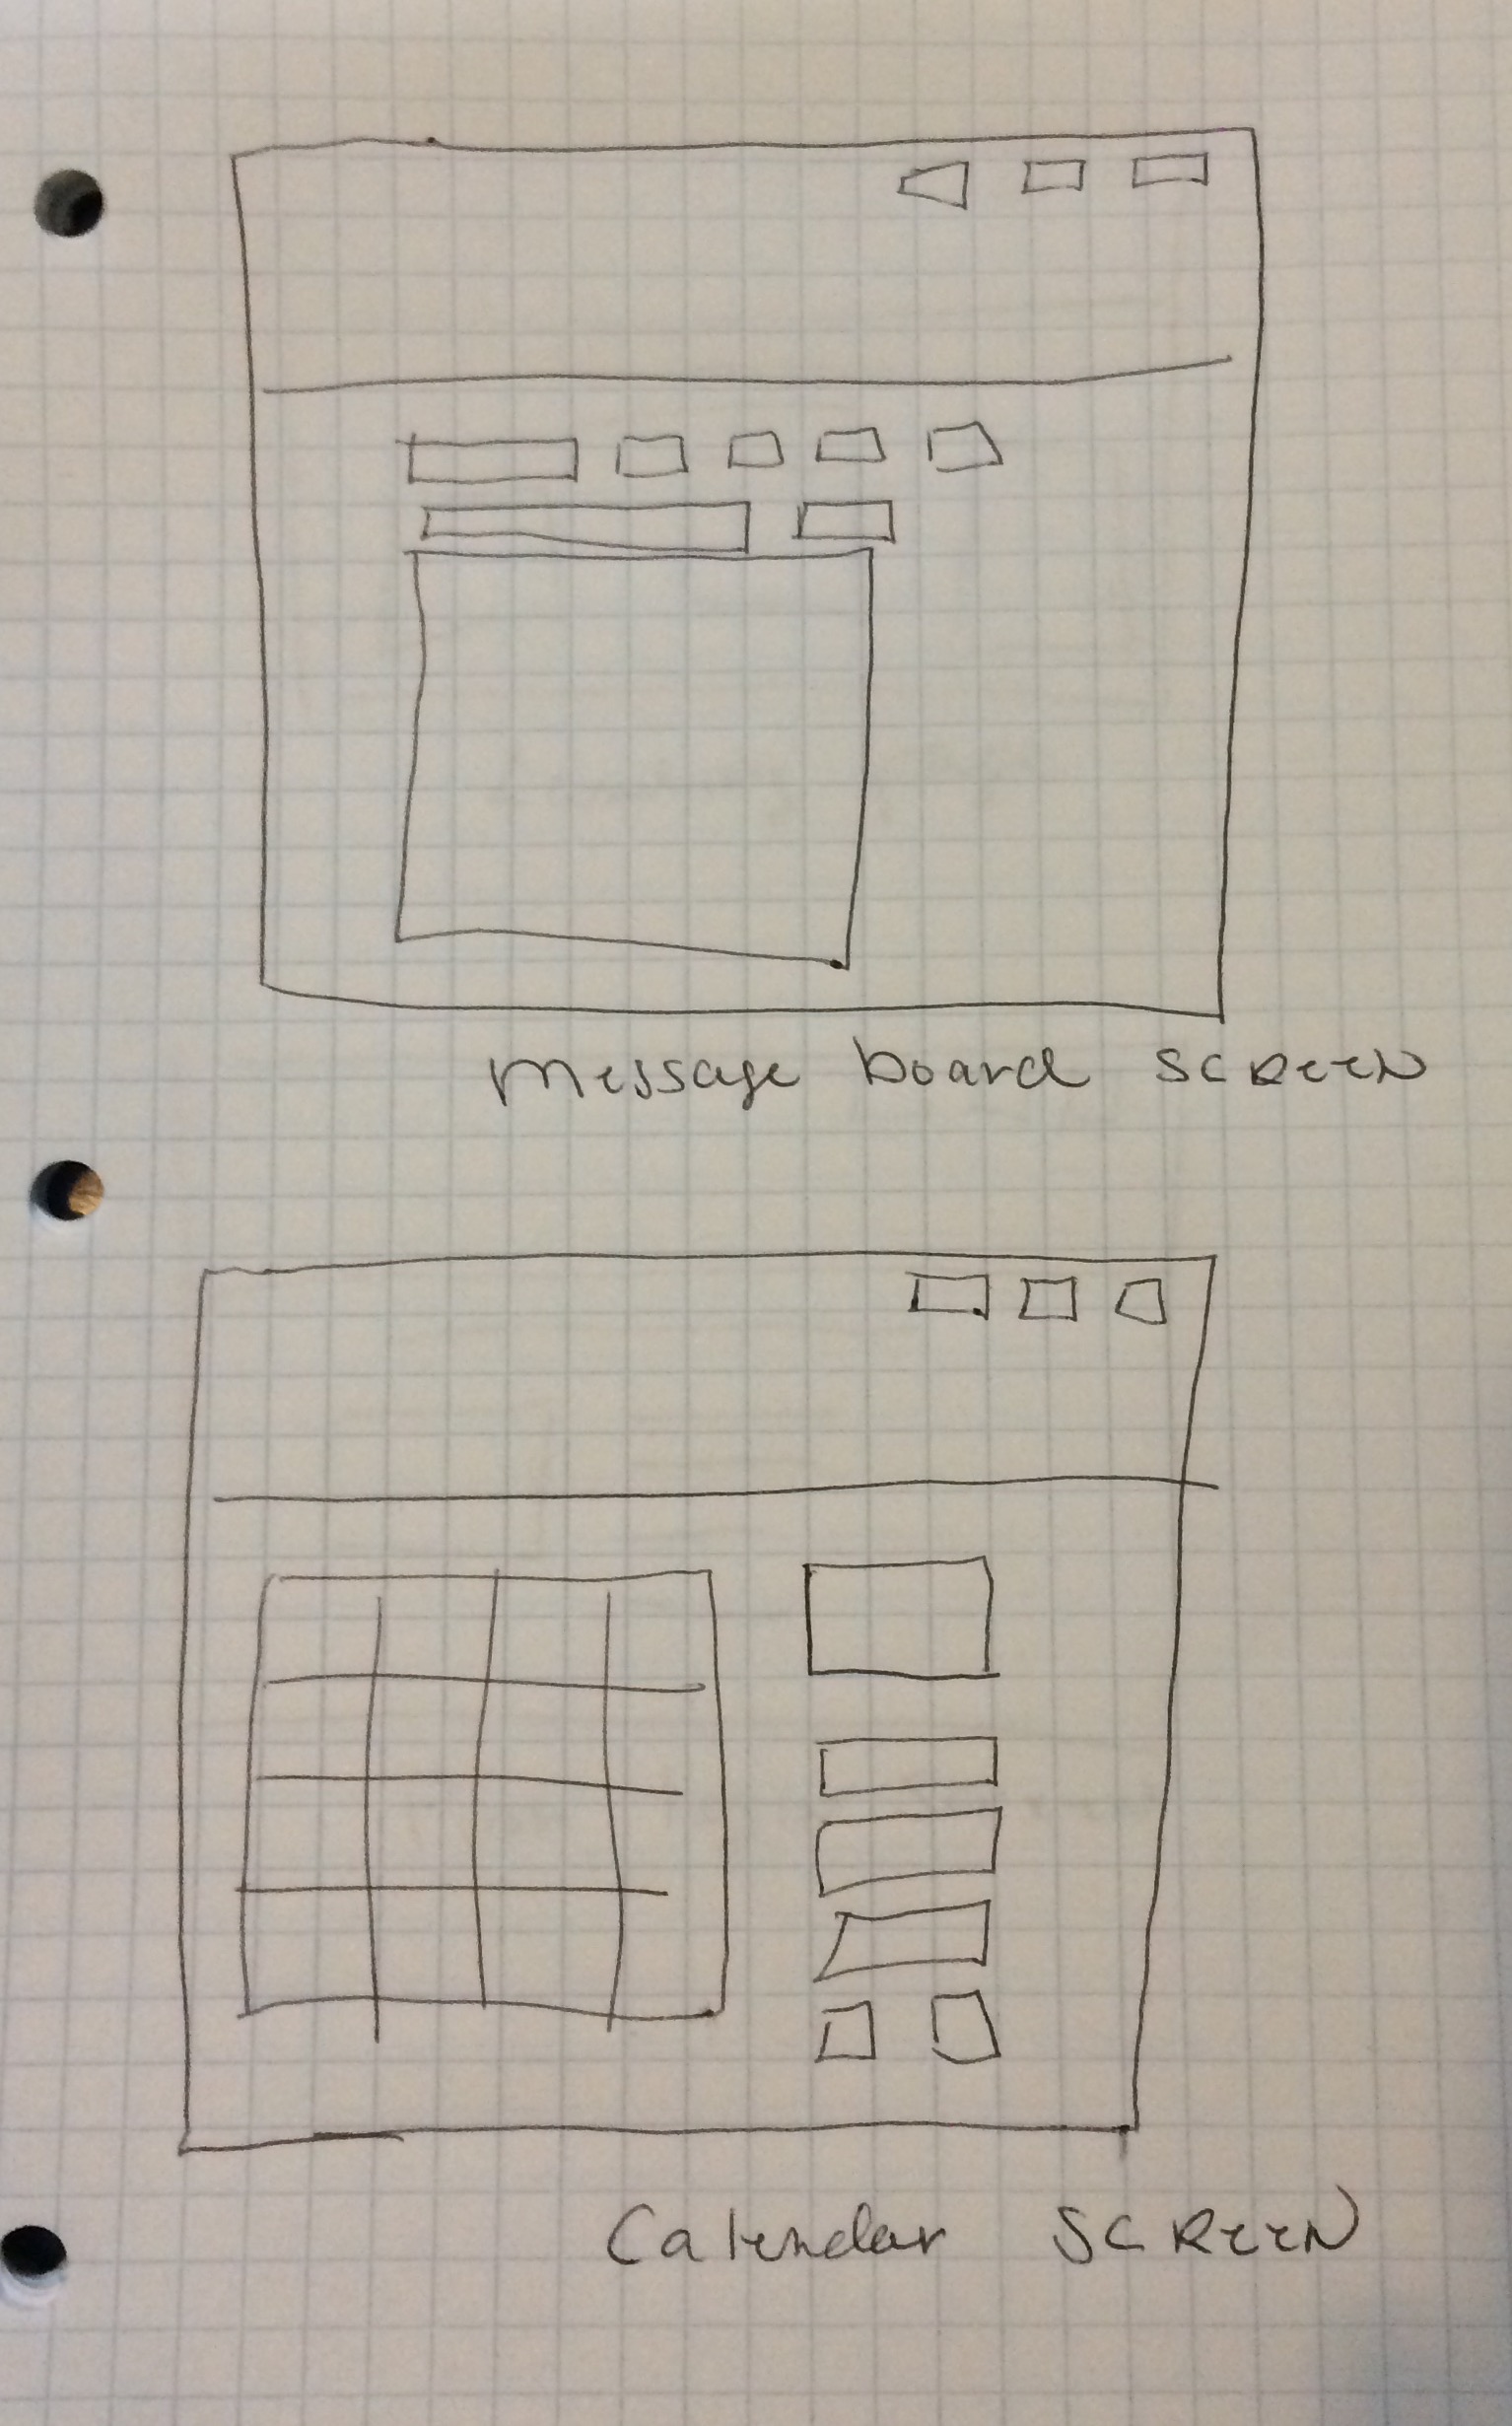 Message board SCREEN
Calendar SCREEN